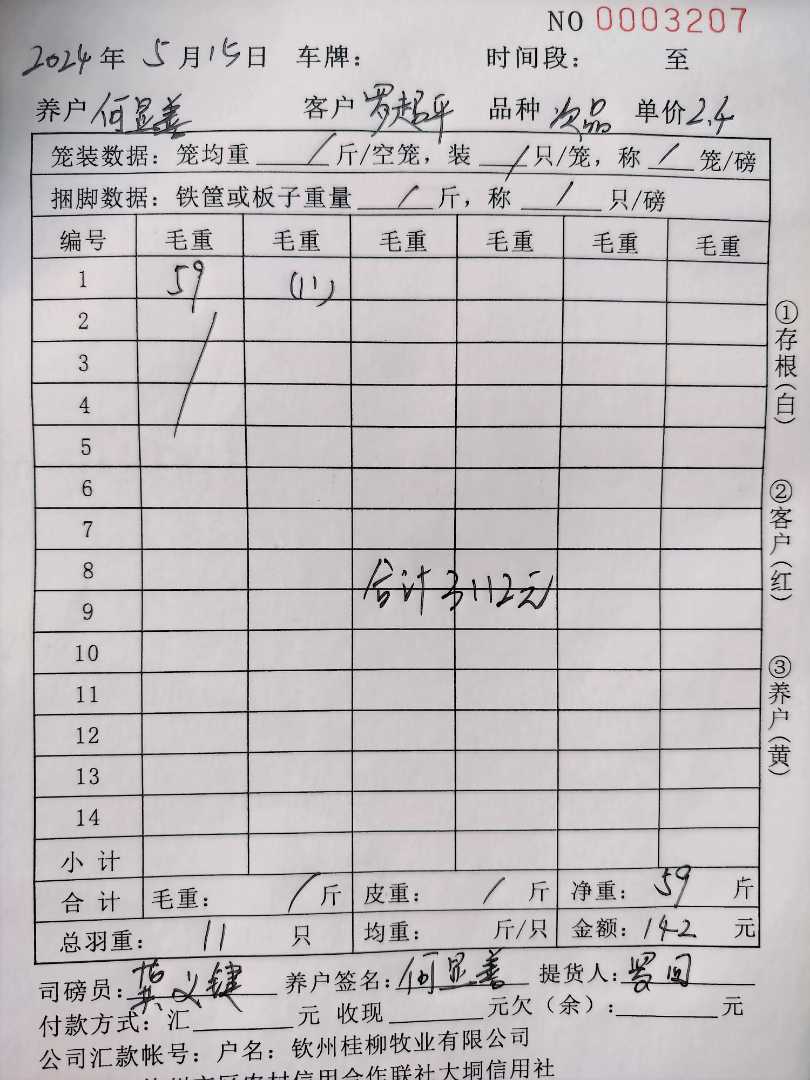 NO 0003207
2024年 5月15日 车牌： 时间段： 至
养户 何显善 客户 罗超平 品种 次品 单价 2.4
笼装数据：笼均重 / 斤/空笼，装 / 只/笼，称 / 笼/磅
捆脚数据：铁筐或板子重量 / 斤，称 / 只/磅
编号 毛重 毛重 毛重 毛重 毛重 毛重
1 59 (11)
2
3
4
5
6
7
8
合计3112元
9
10
11
12
13
14
小 计
合 计 毛重： / 斤 皮重： / 斤 净重： 59 斤
总羽重： 11 只 均重： 斤/只 金额：142 元
司磅员： 义键 养户签名：何显善 提货人：罗
付款方式：汇 元 收现 元欠（余）： 元
公司汇款帐号：户名：钦州桂柳牧业有限公司
农村信用合作联社大垌信用社
①存根(白)
②客户(红)
③养户(黄)